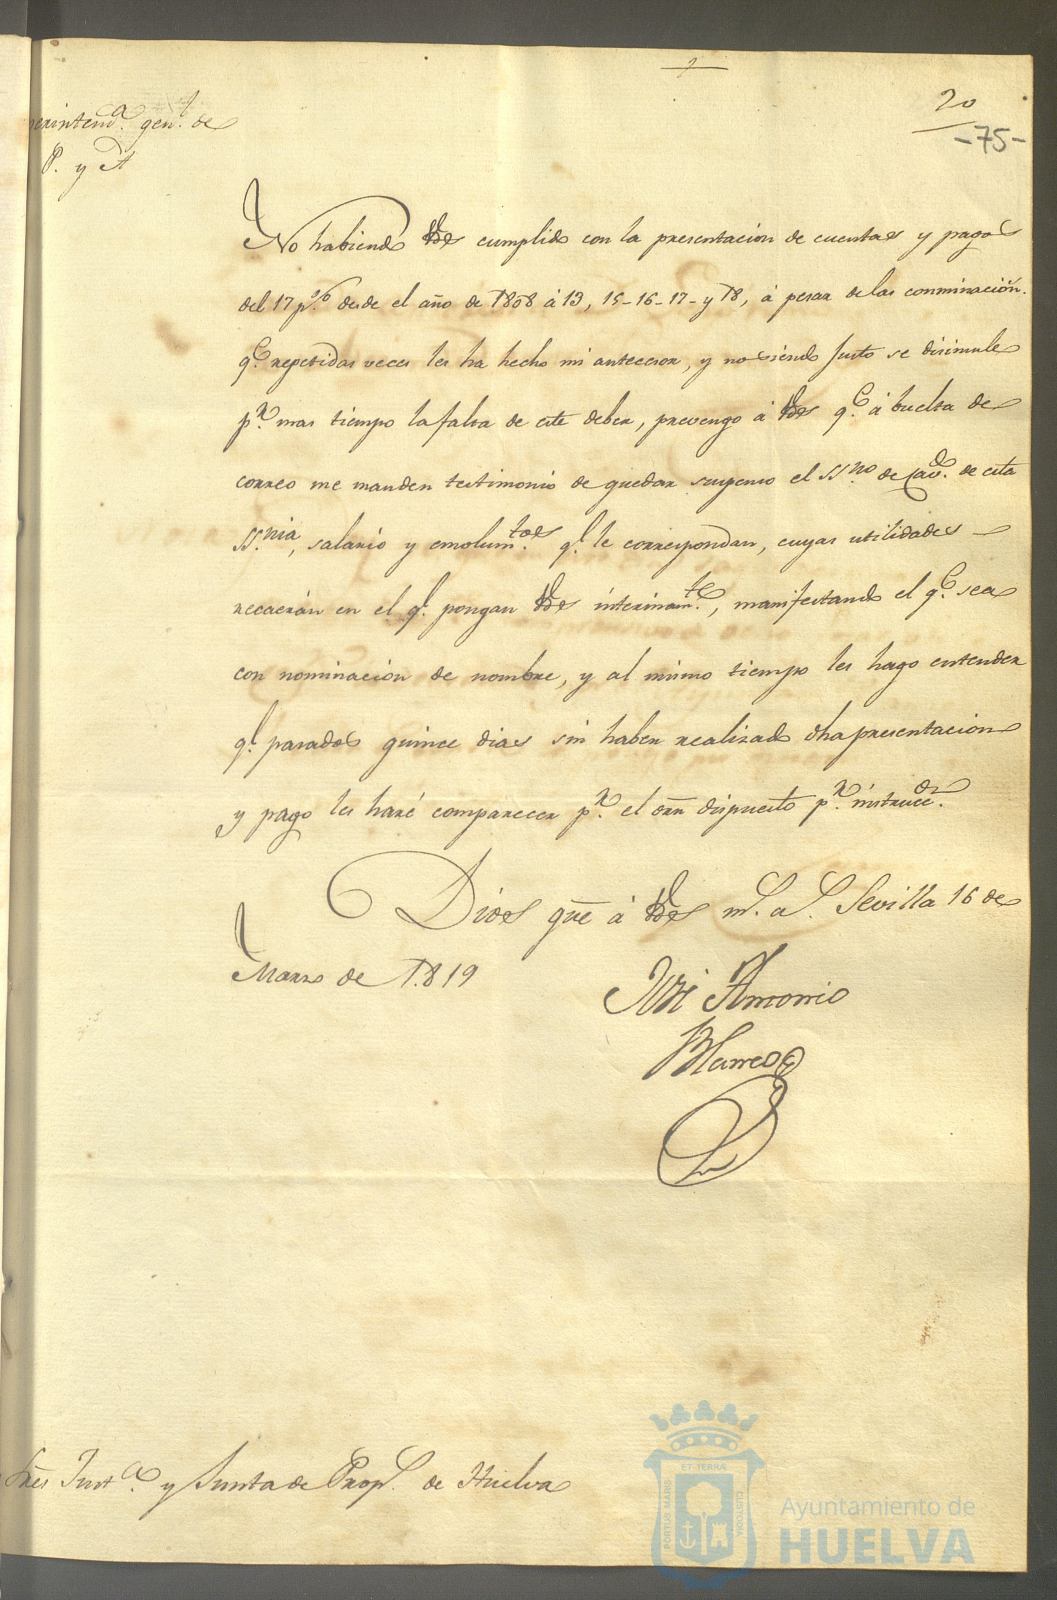 20
-75-
perintend.ª gen.l de
P. y A
No habiendo VVdes cumplido con la presentacion de cuentas y pagos
del 17 p.% desde el año de 1808 á 13, 15-16-17- y 18, á pesar de las conminación.
q.e repetidas veces les ha hecho mi antecesor, y no siendo justo se disimule
p.r mas tiempo la falta de este deber, prevengo á VVdes q.e á buelta de
correo me manden testimonio de quedar suspenso el SS.no de Cav.do de esta
SS.nia, salario y emolum.tos q.e le correspondan, cuyas utilidades
recaerán en el q.e pongan VVdes interinam.te, manifestando el q.e sea
con nominación de nombre, y al mismo tiempo les hago entender
q.e pasados quince dias sin haber realizado dha presentacion
y pago les haré comparecer p.r el orn dispuesto p.r instrucc.on
Dios gue á VVdes m.s a.s Sevilla 16 de
Marzo de 1819
José Antonio
Blanco
Sres Just.ª y Junta de Prop.s de Huelva
PORTUS MARIS
ET TERRÆ
CUSTODIA
Ayuntamiento de
HUELVA